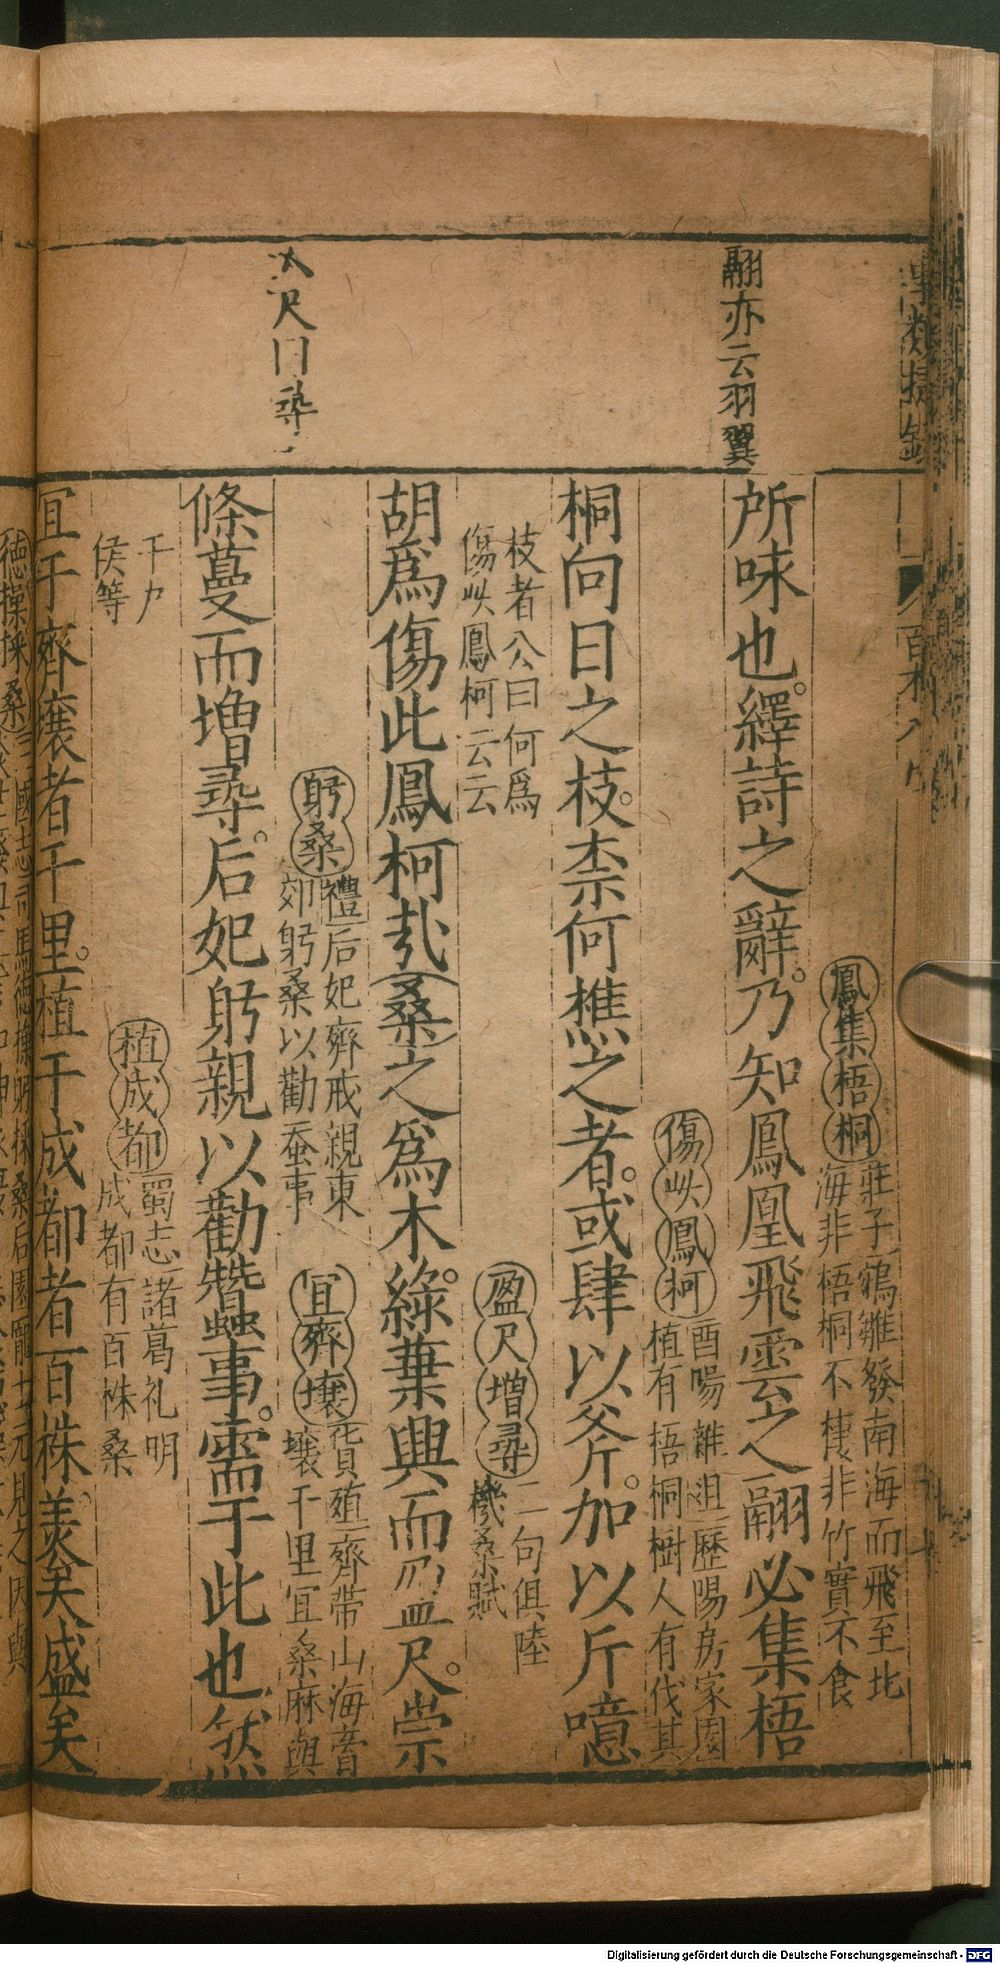 翮亦云羽翼
鳳集梧桐 莊子鵷雛發南海而飛至北
海非梧桐不棲非竹實不食
所味也。繹詩之辭。乃知鳳凰飛雲之翮必集梧
傷此鳳柯 酉陽雜俎歷陽房家園
植有梧桐樹人有伐其
桐向日之枝。柰何樵之者。或肆以斧。加以斤噫
枝者公曰何爲
傷此鳳柯云云
盈尺增尋 二句俱陸
機桑賦
胡爲傷此鳳柯㢤桑之爲木。綠葉興而盈尺。崇
尺
尋
躬桑 禮后妃齊戒親東
郊躬桑以勸蚕事
宜齊壤 貨殖齊帶山海膏
壤千里宜桑麻與
條蔓而增尋。后妃躬親以勸蠶事。需于此也然
千户
侯等
植成都 蜀志諸葛孔明
成都有百株桑
宜于齊壤者千里。植于成都者百株。美矣盛矣
Digitalisierung gefördert durch die Deutsche Forschungsgemeinschaft - DFG